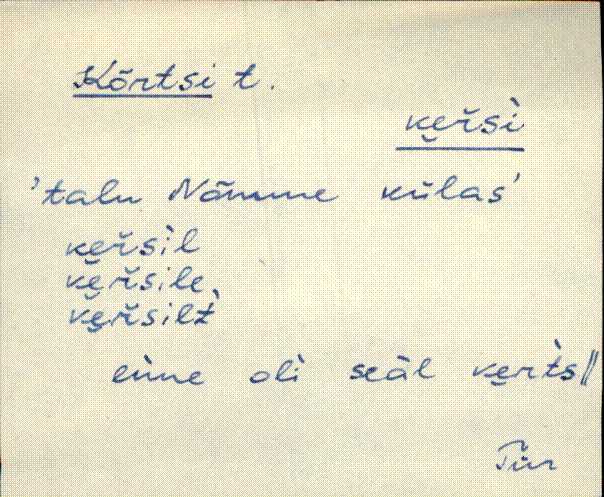 Kõrtsi t.
ke̬řsì
'talu Nõmme külas'
ke̬řsìl
ke̬řsile
ke̬řsilt̀
enne oli seäl ke̬rt̀s ||
Tür